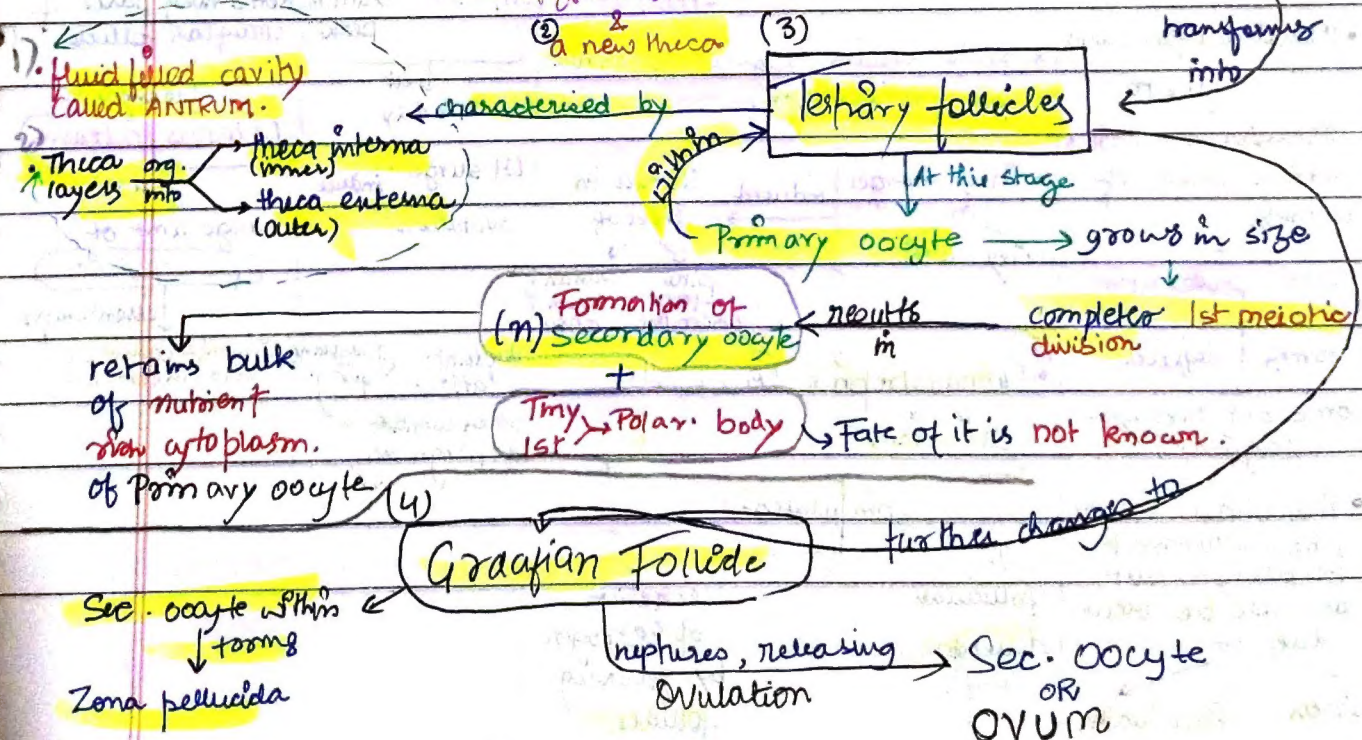 &
② a new theca
(3)
transforms
into
1). fluid filled cavity
called ANTRUM.
characterised by
Tertiary follicles
2)
Theca layers org. into
theca interna
(inner)
theca externa
(outer)
within
At this stage
Primary oocyte → grows in size
completes 1st meiotic
division
results
in
Formation of
(n) Secondary oocyte
+
Tiny
1st
Polar body
Fate of it is not known.
retains bulk
of nutrient
rich cytoplasm.
of Primary oocyte.
(4)
further changes to
Graafian Follicle
Sec. oocyte within
forms
Zona pellucida
ruptures, releasing
Ovulation
Sec. Oocyte
OR
OVUM